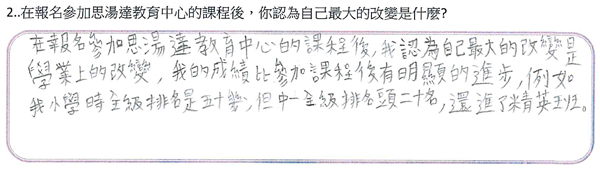 2..在報名參加思湯達教育中心的課程後，你認為自己最大的改變是什麼?
在報名參加思湯達教育中心的課程後,我認為自己最大的改變是
學業上的改變，我的成績比參加課程後有明顯的進步,例如
我小學時全級排名是五十幾,但中一全級排名頭二十名,還進了精英班。